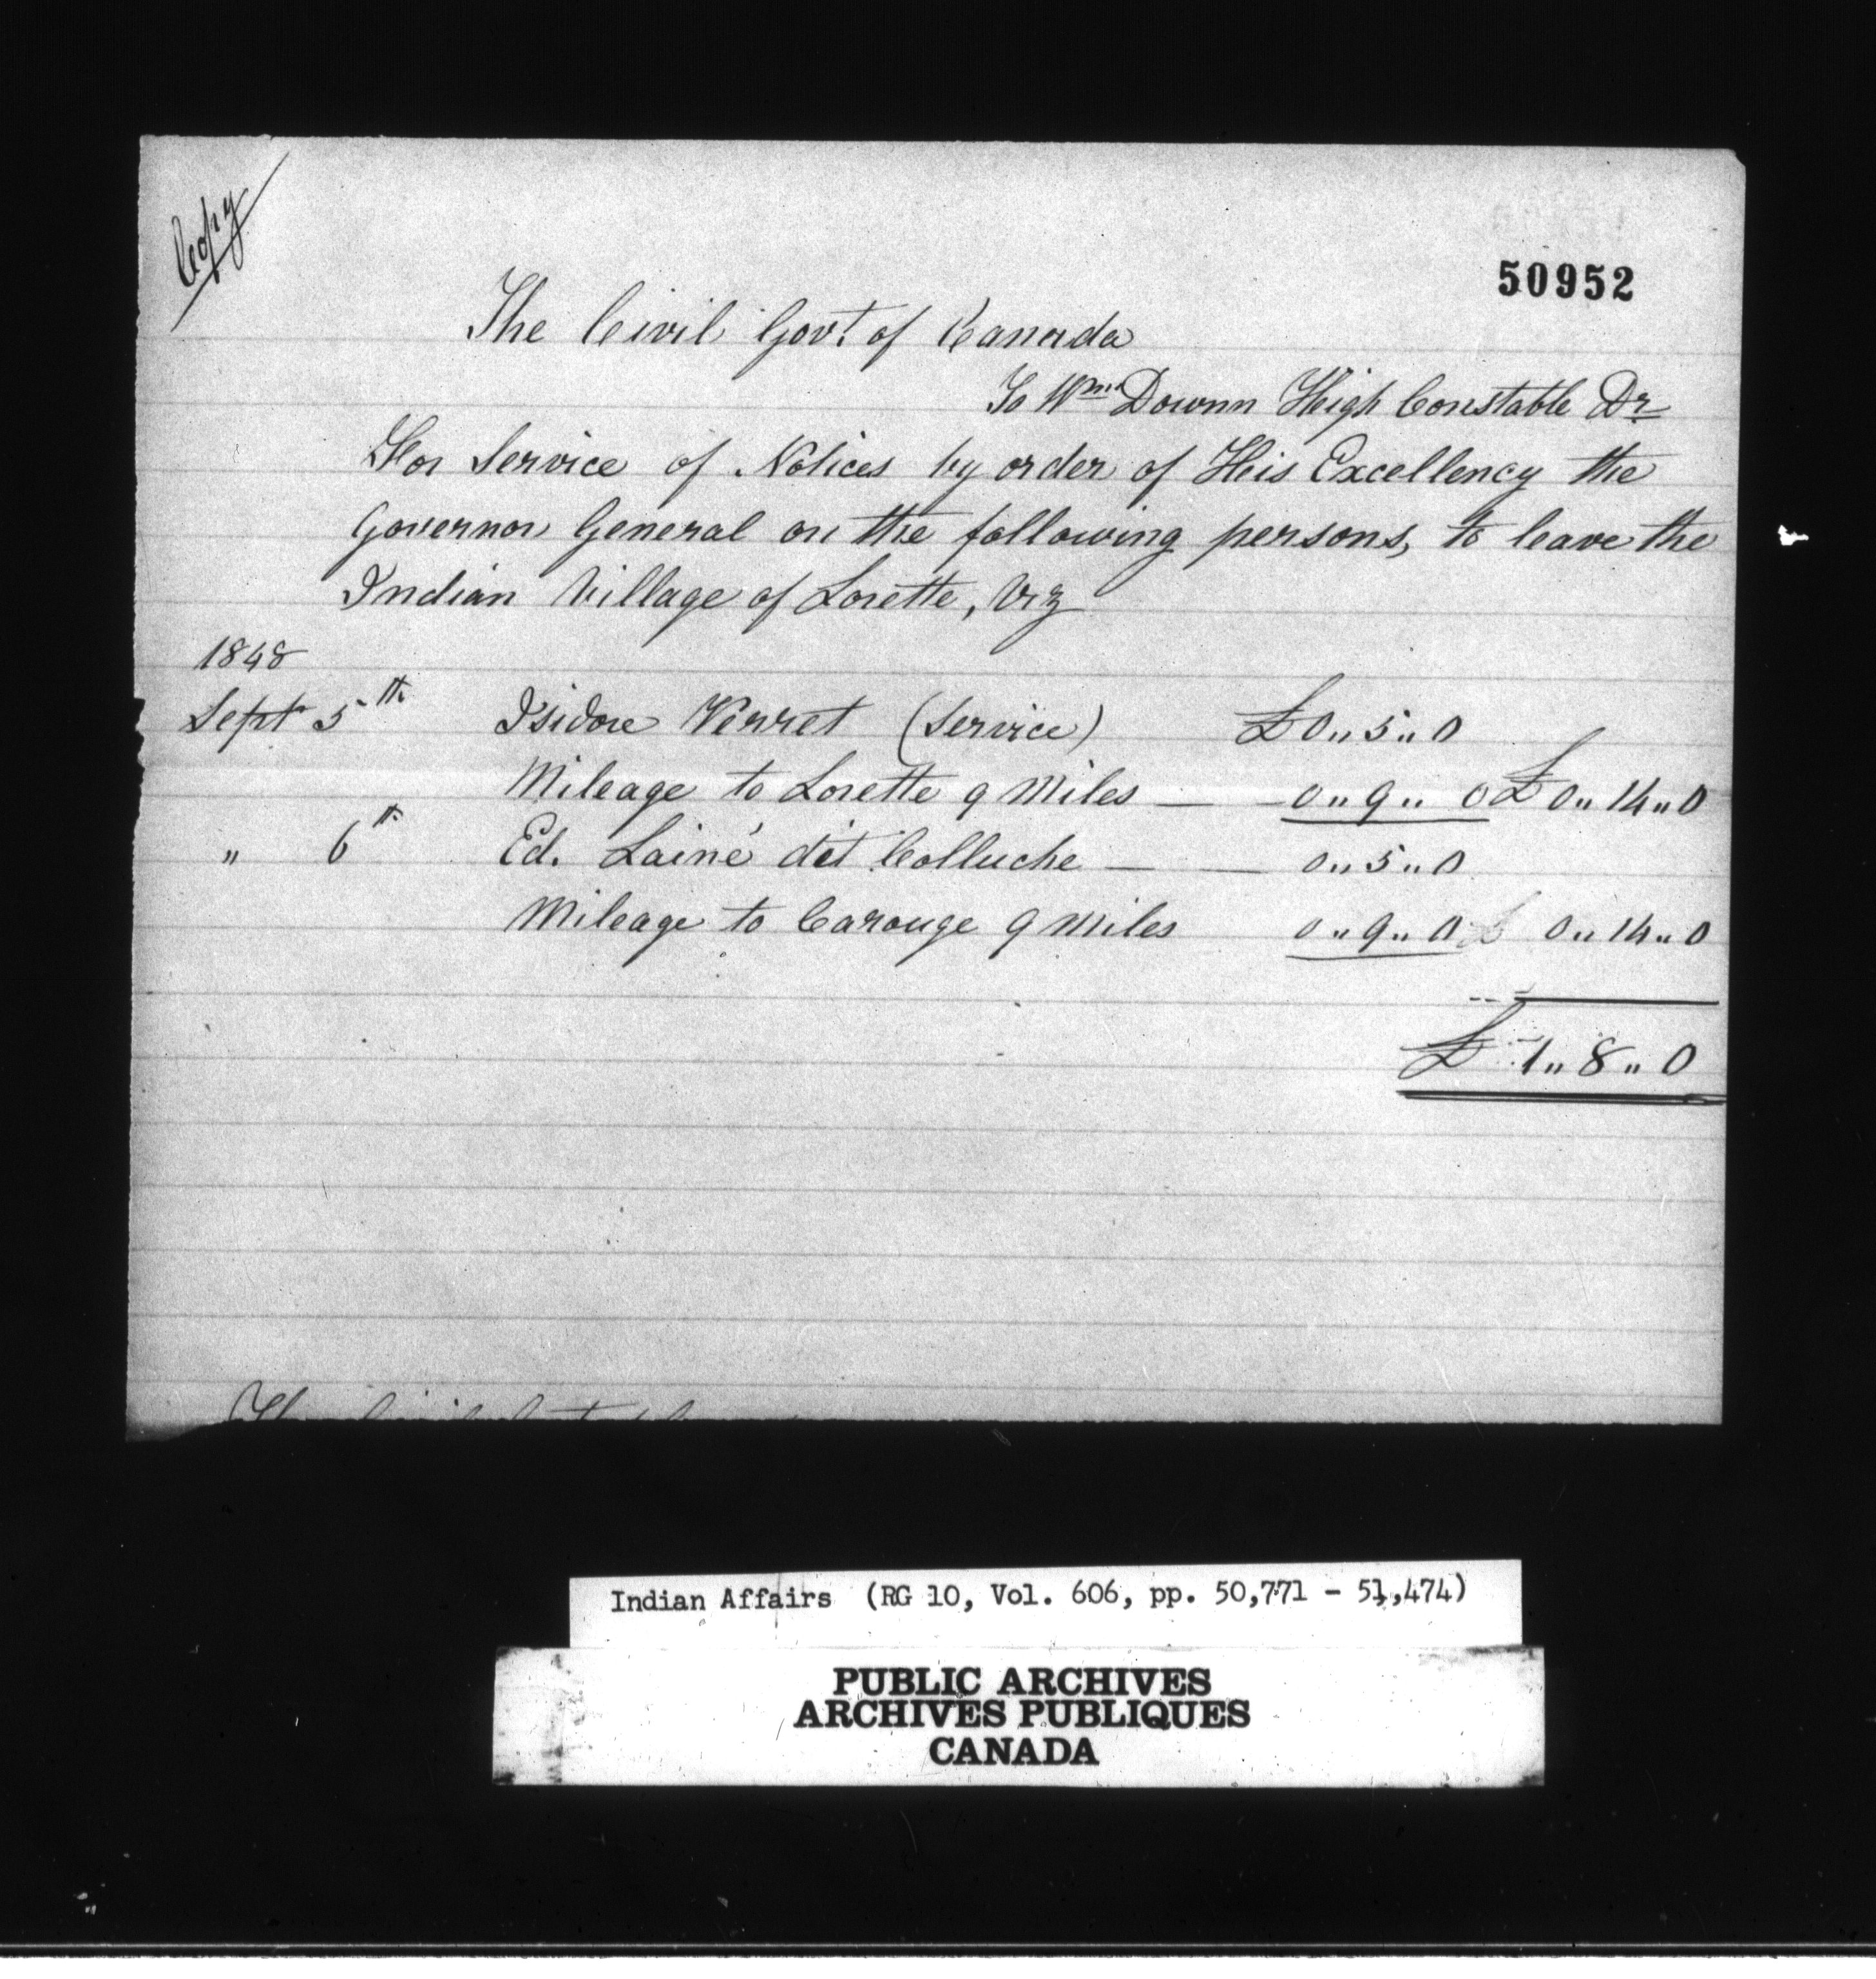 Copy
50952
The Civil Govt. of Canada
To Wm. Downn High Constable Dr
For Service of Notices by order of His Excellency the
Governor General on the following persons, to leave the
Indian Village of Lorette, Viz
1848
Sept 5th Isidore Verret (Service) £ 0 " 5 " 0
Mileage to Lorette 9 Miles — — 0 " 9 " 0 £ 0 " 14 " 0
" 6th Ed. Lainé dit Colluche — — 0 " 5 " 0
Mileage to Carouge 9 Miles 0 " 9 " 0 £ 0 " 14 " 0
£ 1 " 8 " 0
Indian Affairs (RG 10, Vol. 606, pp. 50,771 - 51,474)
PUBLIC ARCHIVES
ARCHIVES PUBLIQUES
CANADA